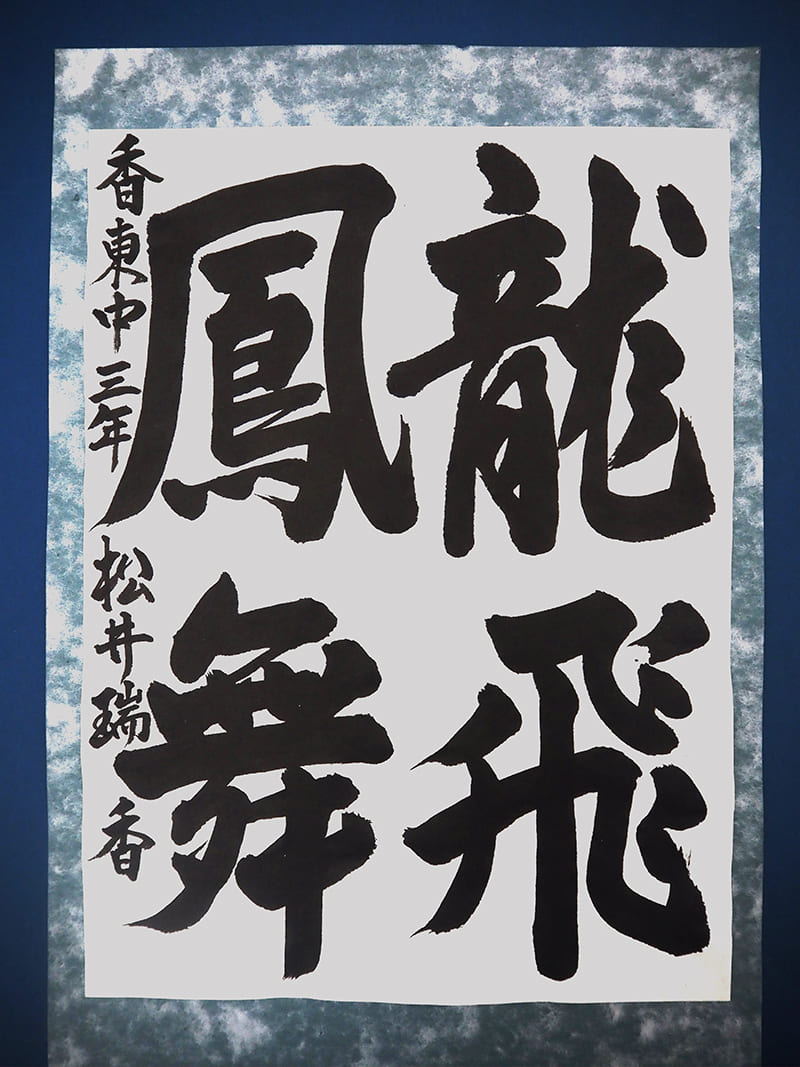 龍飛
鳳舞
香東中三年 松井瑞香